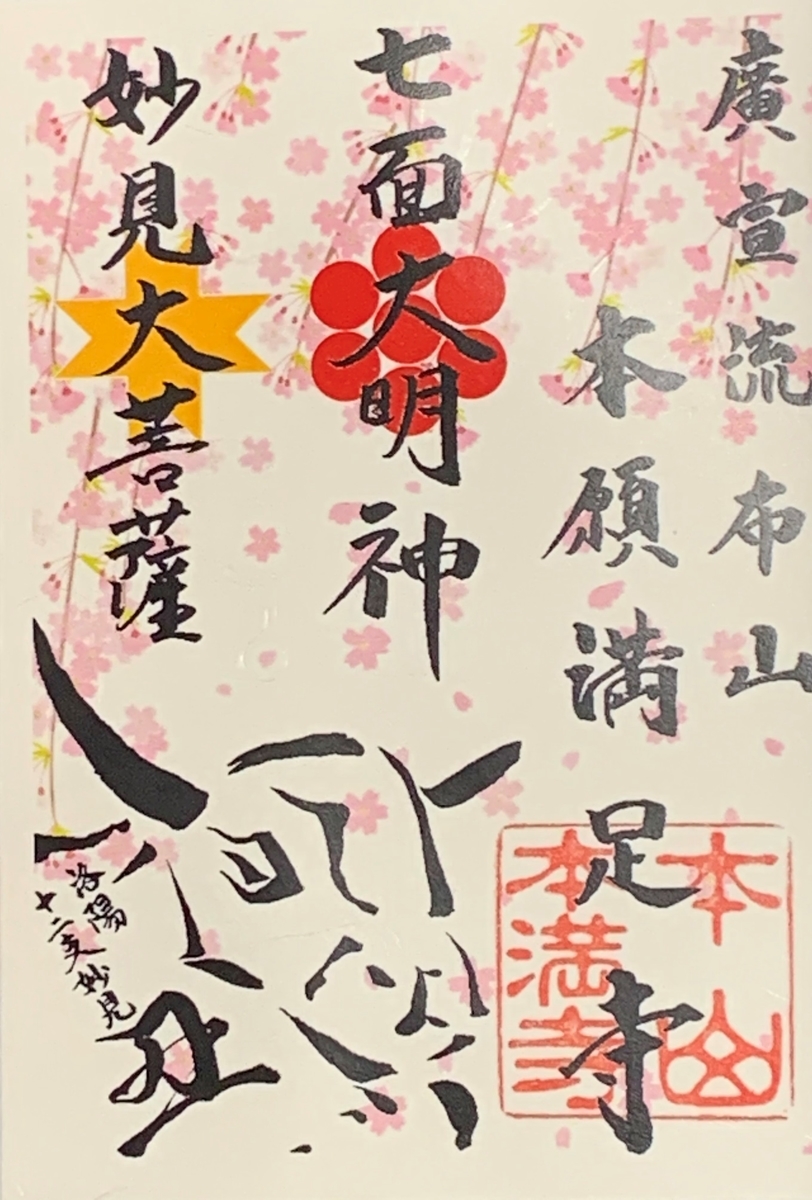 廣宣流布山
本願満足寺
七面大明神
妙見大菩薩
洛陽
十二支妙見
本山
本満寺